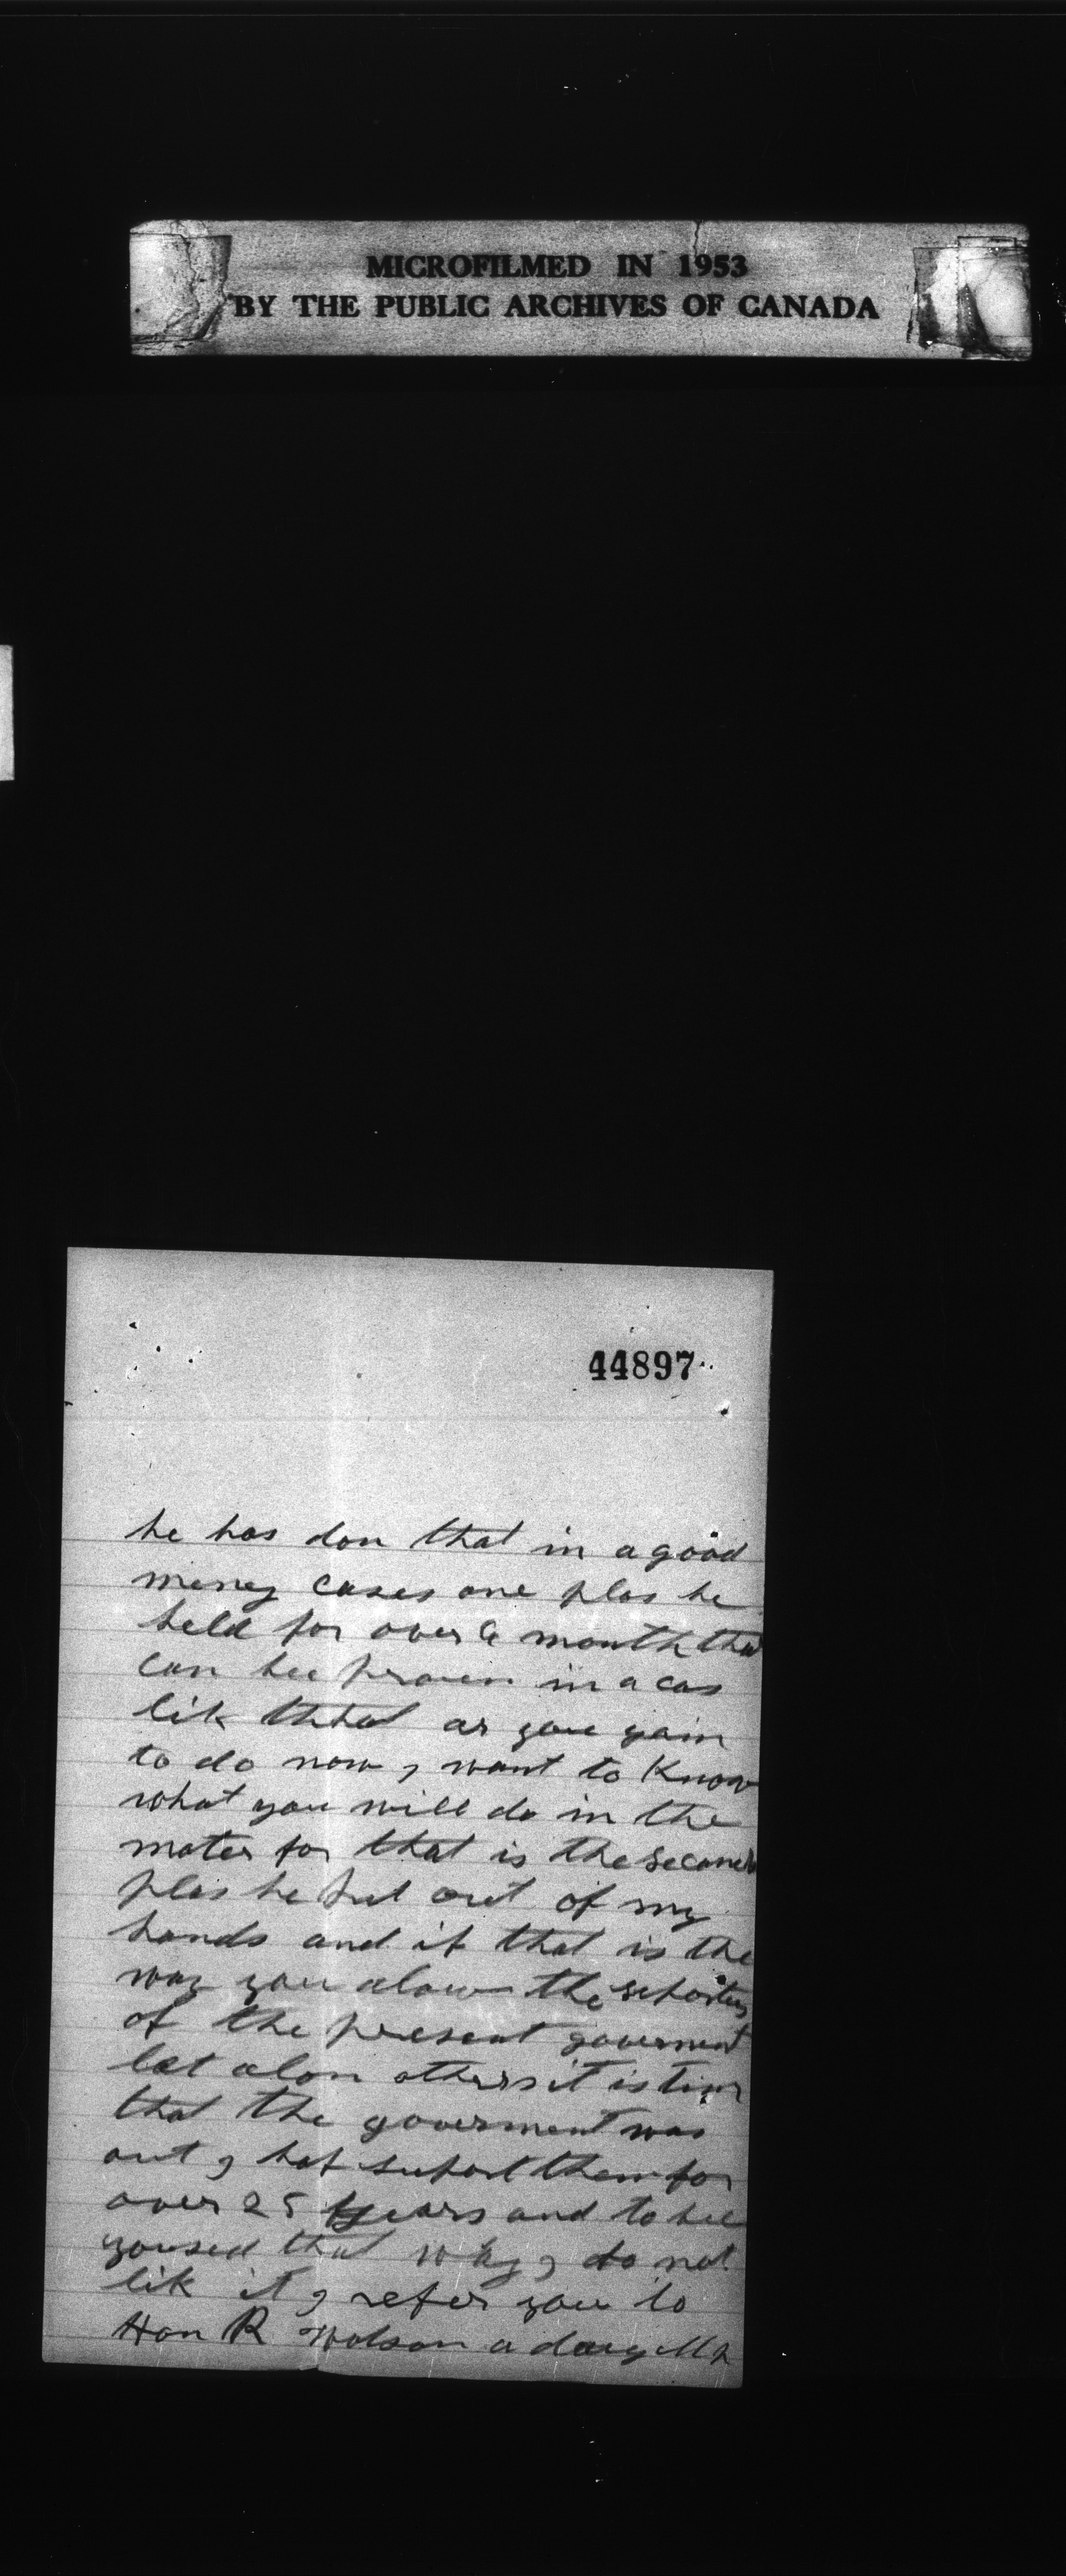 MICROFILMED IN 1953
BY THE PUBLIC ARCHIVES OF CANADA
44897
he has don that in a good
meney cases one plas he
held for over a month that
can bee proven in a cas
lik thhat as you gain
to do now I want to Know
what you will do in the
mater for that is the second
plas he put out of my
hands and if that is the
way you alow the seporters
of the present goverment
let alon others it is time
that the goverment was
out I haf suport them for
over 25 years and to bee
yoused that whay I do not
lik it I refer you to
Hon R Watson a day